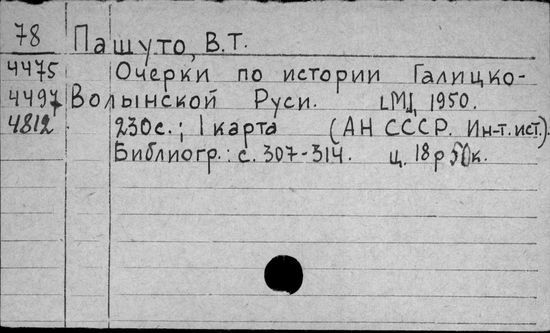 78 Пашуто, В.Т.
4475 Очерки по истории Галицко-
4497 Волынской Руси. [М], 1950.
4812 230с.; 1 карта (АН СССР. Ин-т. ист.).
Библиогр.: с. 307-314. ц. 18р 50к.